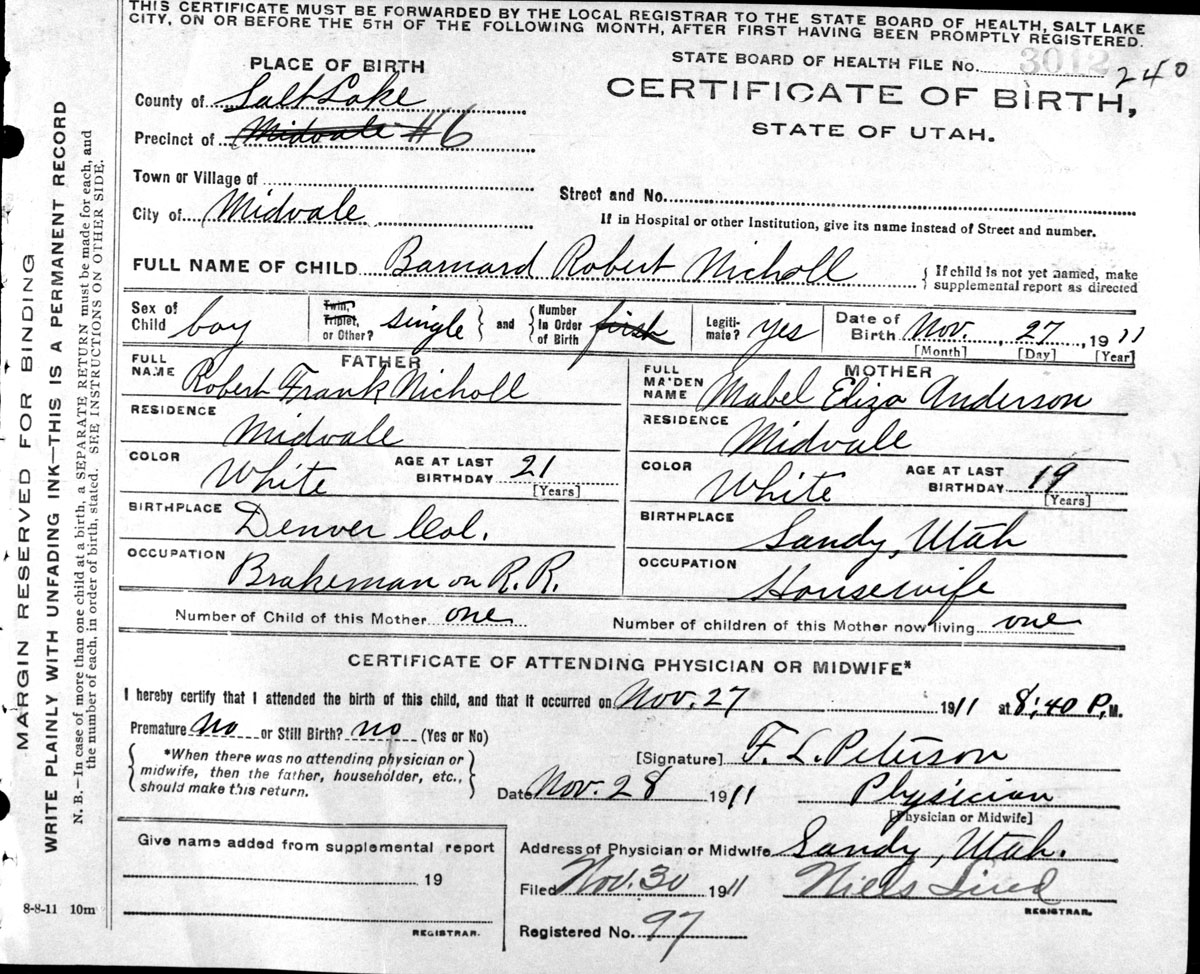 THIS CERTIFICATE MUST BE FORWARDED BY THE LOCAL REGISTRAR TO THE STATE BOARD OF HEALTH, SALT LAKE
CITY, ON OR BEFORE THE 5TH OF THE FOLLOWING MONTH, AFTER FIRST HAVING BEEN PROMPTLY REGISTERED.
STATE BOARD OF HEALTH FILE No. 3012 240
CERTIFICATE OF BIRTH,
STATE OF UTAH.
PLACE OF BIRTH
County of Salt Lake
Precinct of Midvale #6
Town or Village of
Street and No.
City of Midvale
If in Hospital or other Institution, give its name instead of Street and number.
FULL NAME OF CHILD Barnard Robert Nicholl
If child is not yet named, make
supplemental report as directed
Sex of
Child boy
Twin,
Triplet,
or Other? single
and
Number
In Order
of Birth first
Legiti-
mate? yes
Date of
Birth Nov. 27, 1911
[Month] [Day] [Year]
FATHER
FULL
NAME Robert Frank Nicholl
RESIDENCE
Midvale
COLOR White
AGE AT LAST
BIRTHDAY 21
[Years]
BIRTHPLACE
Denver Col.
OCCUPATION
Brakeman on R.R.
MOTHER
FULL
MA'DEN
NAME Mabel Eliza Anderson
RESIDENCE
Midvale
COLOR White
AGE AT LAST
BIRTHDAY 19
[Years]
BIRTHPLACE
Sandy, Utah
OCCUPATION
Housewife
Number of Child of this Mother one
Number of children of this Mother now living one
CERTIFICATE OF ATTENDING PHYSICIAN OR MIDWIFE*
I hereby certify that I attended the birth of this child, and that it occurred on Nov. 27 1911 at 8:40 P.M.
Premature no or Still Birth? no (Yes or No)
*When there was no attending physician or
midwife, then the father, householder, etc.,
should make this return.
[Signature] F. L. Peterson
Date Nov. 28 1911 Physician
[Physician or Midwife]
Give name added from supplemental report
19
REGISTRAR.
Address of Physician or Midwife Sandy, Utah.
Filed Nov. 30 1911 Niels Lind
REGISTRAR.
Registered No. 97
8-8-11 10m
MARGIN RESERVED FOR BINDING
WRITE PLAINLY WITH UNFADING INK—THIS IS A PERMANENT RECORD
N. B.—In case of more than one child at a birth, a SEPARATE RETURN must be made for each, and
the number of each, in order of birth, stated. SEE INSTRUCTIONS ON OTHER SIDE.